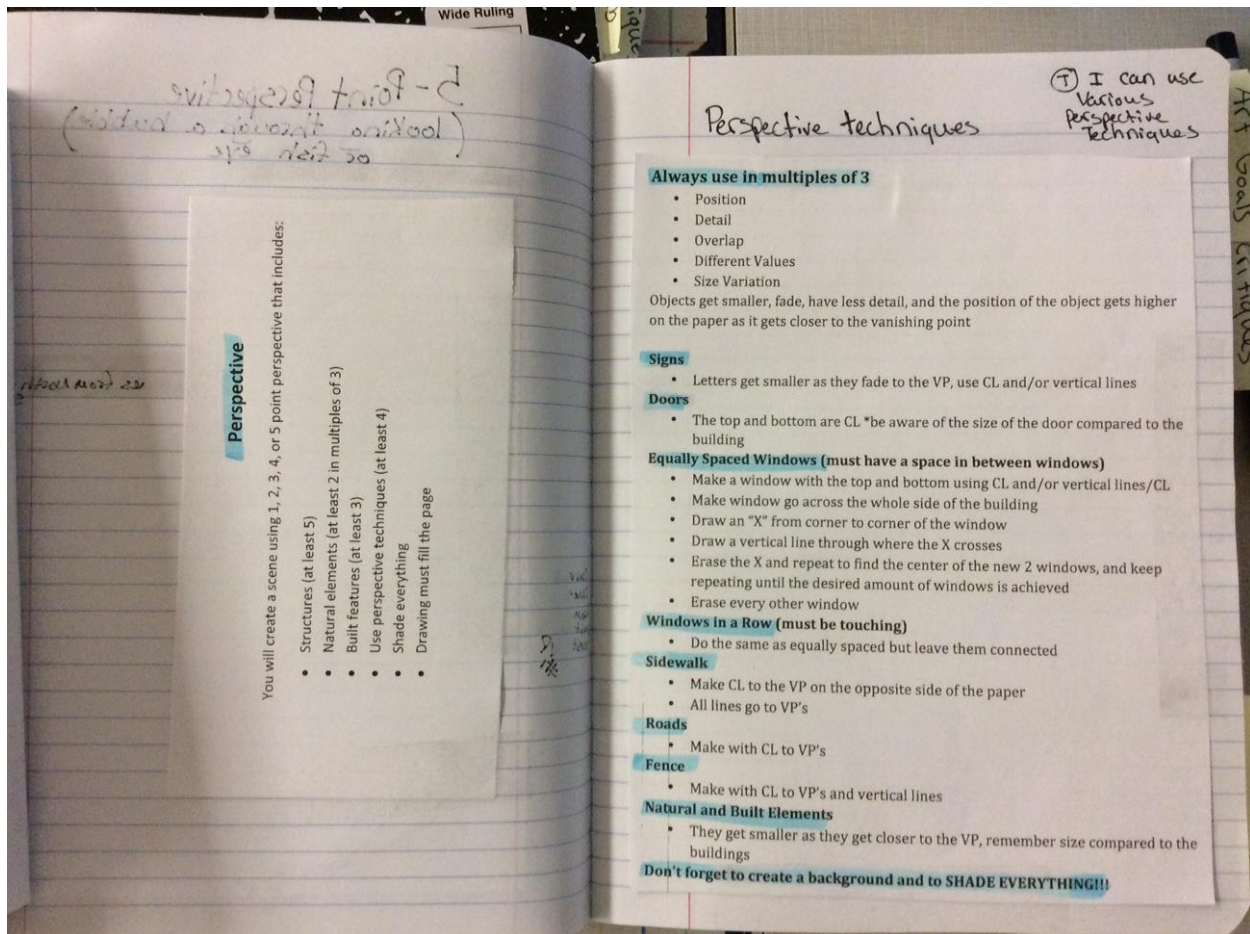 Wide Ruling
5-Point Perspective
(looking through a bubble)
or fish eye
Perspective
You will create a scene using 1, 2, 3, 4, or 5 point perspective that includes:
• Structures (at least 5)
• Natural elements (at least 2 in multiples of 3)
• Built features (at least 3)
• Use perspective techniques (at least 4)
• Shade everything
• Drawing must fill the page
Perspective techniques
Ⓣ I can use
Various
Perspective
Techniques
Always use in multiples of 3
• Position
• Detail
• Overlap
• Different Values
• Size Variation
Objects get smaller, fade, have less detail, and the position of the object gets higher
on the paper as it gets closer to the vanishing point
Signs
• Letters get smaller as they fade to the VP, use CL and/or vertical lines
Doors
• The top and bottom are CL *be aware of the size of the door compared to the
building
Equally Spaced Windows (must have a space in between windows)
• Make a window with the top and bottom using CL and/or vertical lines/CL
• Make window go across the whole side of the building
• Draw an "X" from corner to corner of the window
• Draw a vertical line through where the X crosses
• Erase the X and repeat to find the center of the new 2 windows, and keep
repeating until the desired amount of windows is achieved
• Erase every other window
Windows in a Row (must be touching)
• Do the same as equally spaced but leave them connected
Sidewalk
• Make CL to the VP on the opposite side of the paper
• All lines go to VP's
Roads
• Make with CL to VP's
Fence
• Make with CL to VP's and vertical lines
Natural and Built Elements
• They get smaller as they get closer to the VP, remember size compared to the
buildings
Don't forget to create a background and to SHADE EVERYTHING!!!
Art Goals
Critiques